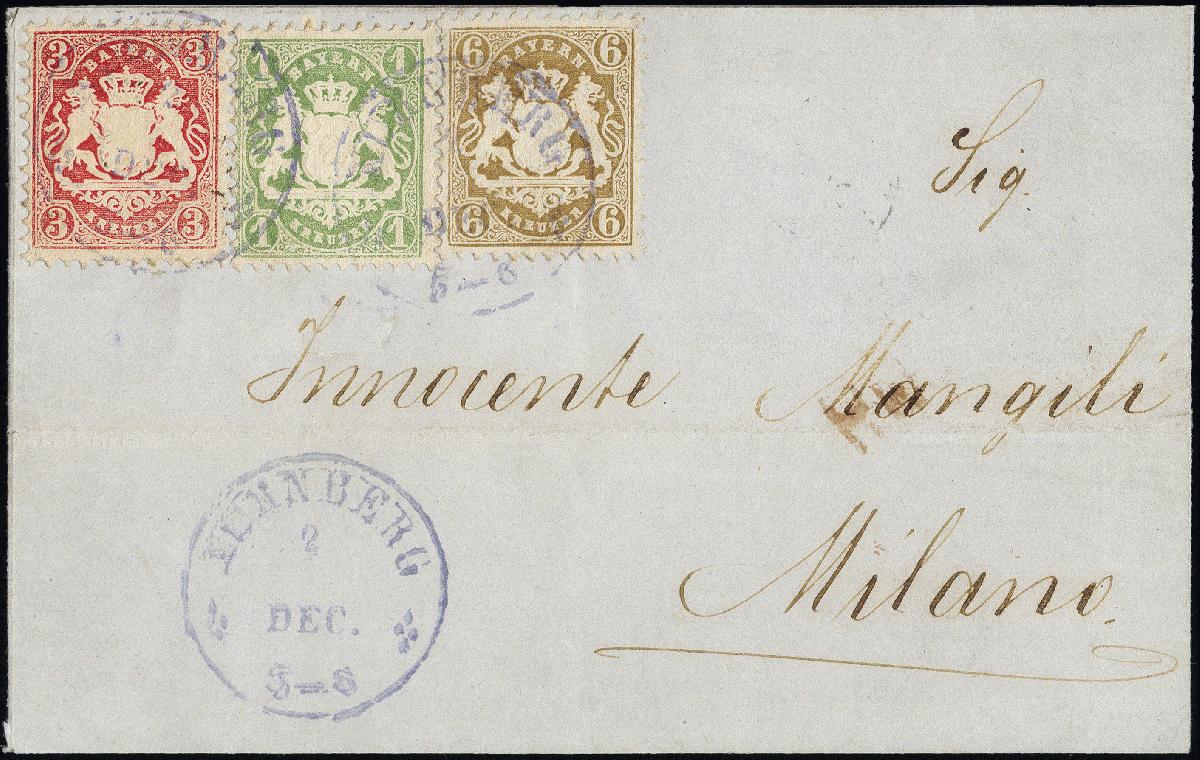 3 3
BAYERN
3 3
KREUZER
1 1
BAYERN
1 1
KREUZER
6 6
BAYERN
6 6
KREUZER
5—6
Sig.
Innocente Mangili
Milano.
NÜRNBERG
2
DEC.
5—6